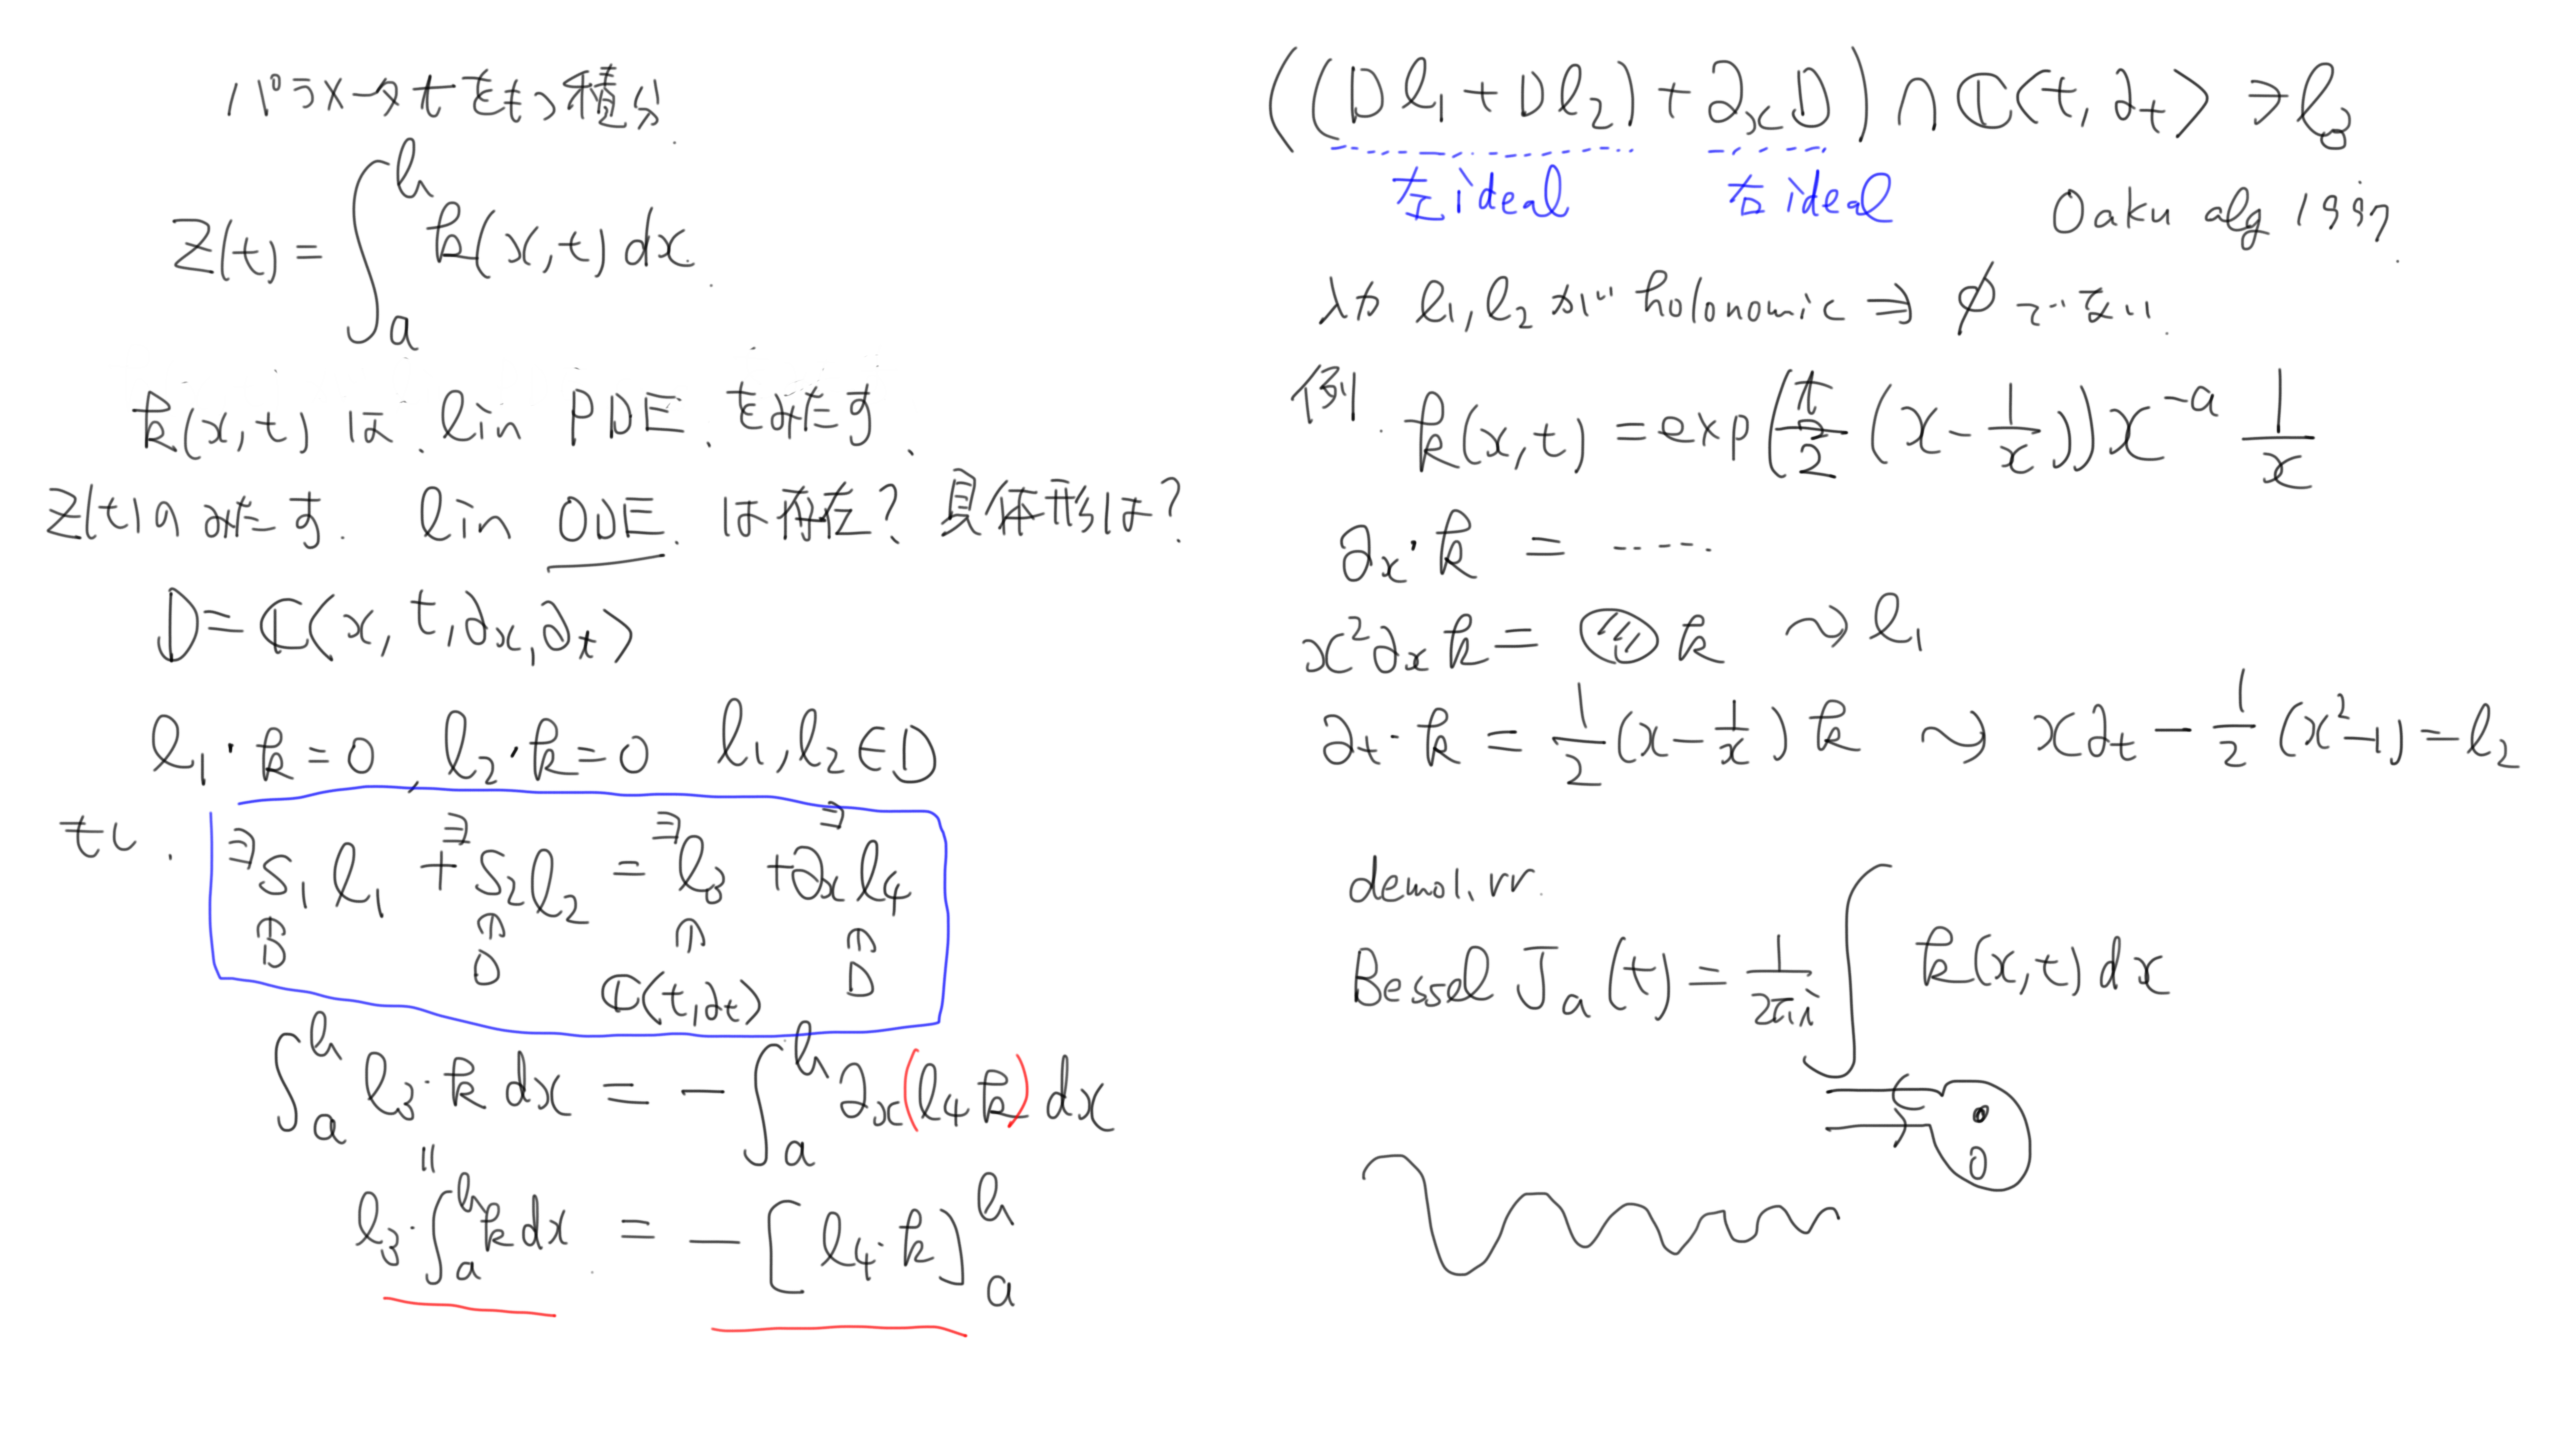 パラメータtをもつ積分.
Z(t) = ∫_a^b k(x,t) dx.
k(x,t) は. lin PDE. をみたす.
Z(t)の みたす. lin ODE. は存在? 具体形は?
D = ℂ⟨x, t, ∂x, ∂t⟩
l1・k = 0, l2・k = 0 l1, l2 ∈ D
もし. ∃s1 l1 + ∃s2 l2 = ∃l3 + ∂x ∃l4
D D ℂ⟨t, ∂t⟩ D
∫_a^b l3・k dx = - ∫_a^b ∂x(l4 k) dx
=
l3・∫_a^b k dx = - [l4・k]_a^b
((D l1 + D l2) + ∂x D) ∩ ℂ⟨t, ∂t⟩ ∋ l3
左ideal 右ideal
Oaku alg 1997.
入力 l1, l2 が holonomic ⇒ φ でない.
例. k(x,t) = exp(t/2 (x - 1/x)) x^{-a} 1/x
∂x・k = ......
x^2 ∂x k = k ⤳ l1
∂t・k = 1/2 (x - 1/x) k ⤳ x∂t - 1/2 (x^2 - 1) = l2
demo1.rr.
Bessel J_a(t) = 1/2πi ∫ k(x,t) dx
0